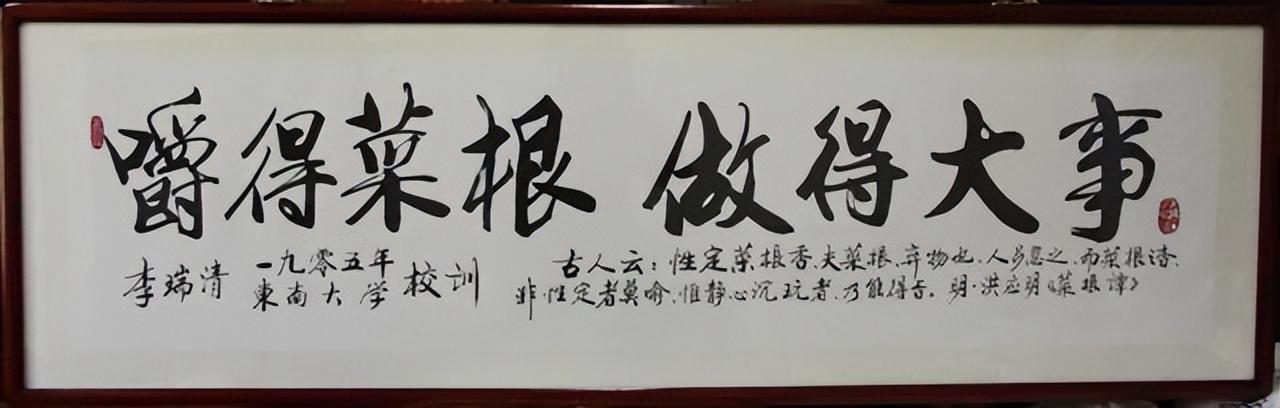 嚼得菜根 做得大事
李瑞清 一九零五年
東南大学 校训
古人云：性定菜根香、夫菜根、弃物也、人多忽之、而菜根请、
非性定者莫喻、惟静心沉玩者、乃能得旨。明·洪应明《菜根谭》